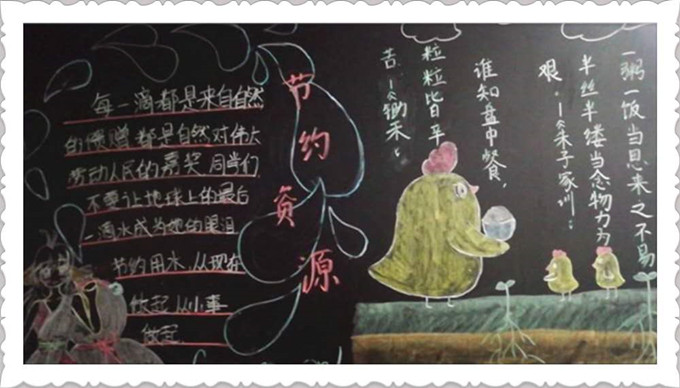 每一滴都是来自自然
的馈赠,都是自然对伟大
劳动人民的嘉奖,同学们
不要让地球上的最后
一滴水成为她的眼泪
节约用水,从现在
做起,从小事
做起.
节约资源
一粥一饭当思来之不易
半丝半缕当念物力为
艰。—《朱子家训》
谁知盘中餐,
粒粒皆辛
苦。—《锄禾》